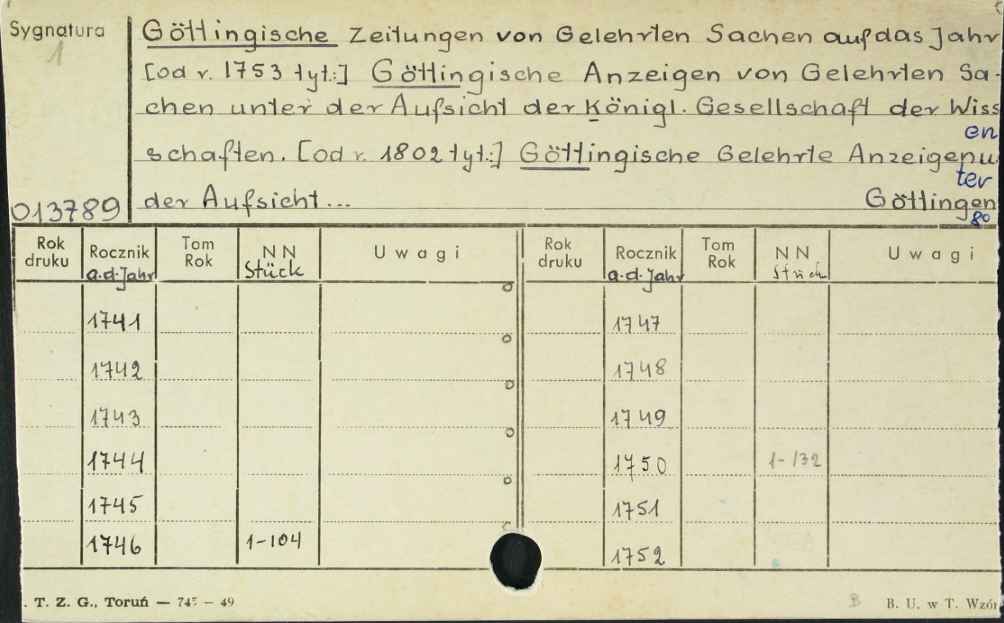 Sygnatura
1
Göttingische Zeitungen von Gelehrten Sachen auf das Jahr
[od r. 1753 tyt.:] Göttingische Anzeigen von Gelehrten Sa-
chen unter der Aufsicht der Königl. Gesellschaft der Wiss
en
schaften. [od r. 1802 tyt.:] Göttingische Gelehrte Anzeigen u
ter
der Aufsicht... Göttingen
8o
013789
Rok druku Rocznik a.d. Jahr Tom Rok NN Stück Uwagi Rok druku Rocznik a.d. Jahr Tom Rok NN Stück Uwagi
1741 1747
1742 1748
1743 1749
1744 1750 1-132
1745 1751
1746 1-104 1752
. T. Z. G., Toruń — 745 — 49 B B. U. w T. Wzór